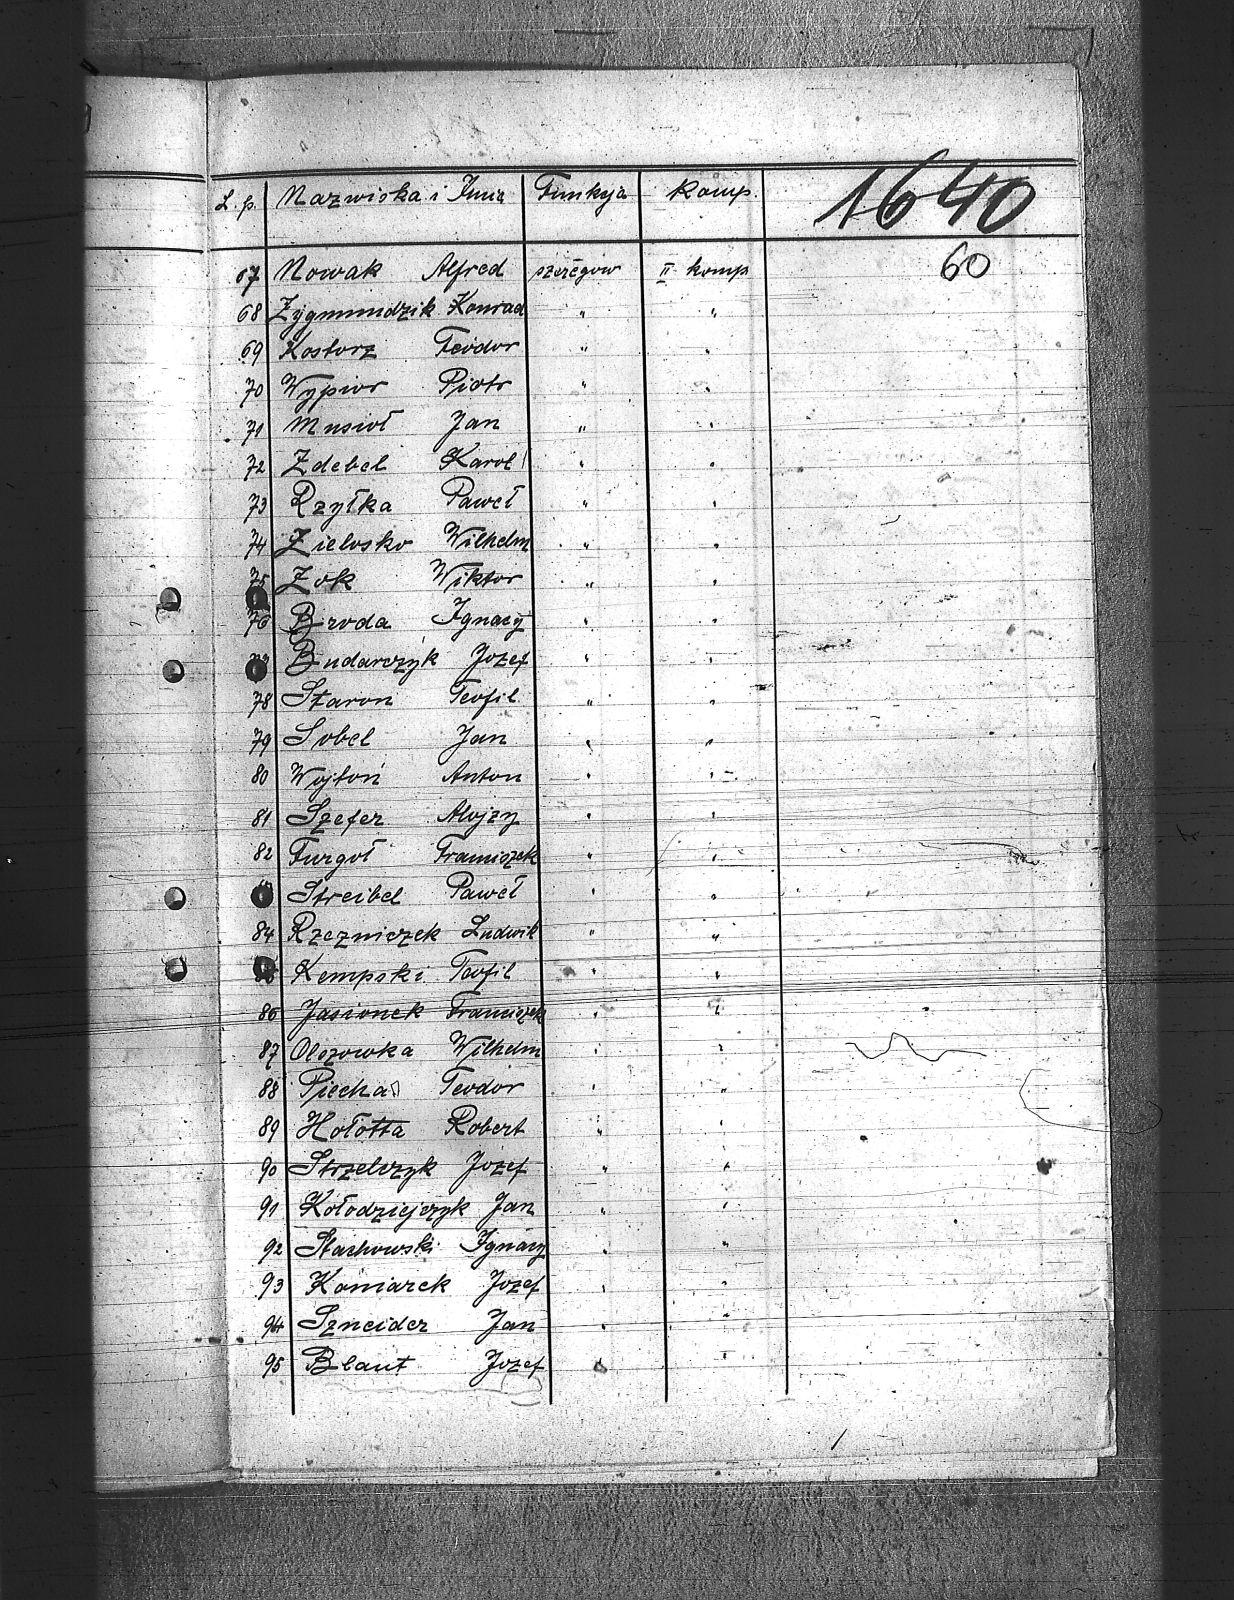 L.p. Nazwiska i Imię Funkcja Komp. 1640
60
67 Nowak Alfred szeregow II komp
68 Zygmundzik Konrad " "
69 Kostorz Teodor " "
70 Wypior Piotr " "
71 Musioł Jan " "
72 Zdebel Karol " "
73 Rzyłka Paweł " "
74 Zielosko Wilhelm " "
75 Zok Wiktor " "
76 Broda Ignacy " "
Budarczyk Jozef " "
78 Staroń Teofil " "
79 Sobel Jan " "
80 Wojtoń Anton " "
81 Szefer Alojzy " "
82 Furgoł Franciszek " "
Streibel Paweł " "
84 Rzezniczek Ludwik " "
Kempski Teofil " "
86 Jasionek Franciszek " "
87 Olszowka Wilhelm " "
88 Piecha Teodor " "
89 Hołotta Robert " "
90 Strzelczyk Jozef " "
91 Kołodziejczyk Jan " "
92 Stachowski Ignacy " "
93 Koniarek Jozef " "
94 Szneider Jan " "
95 Blaut Jozef " "